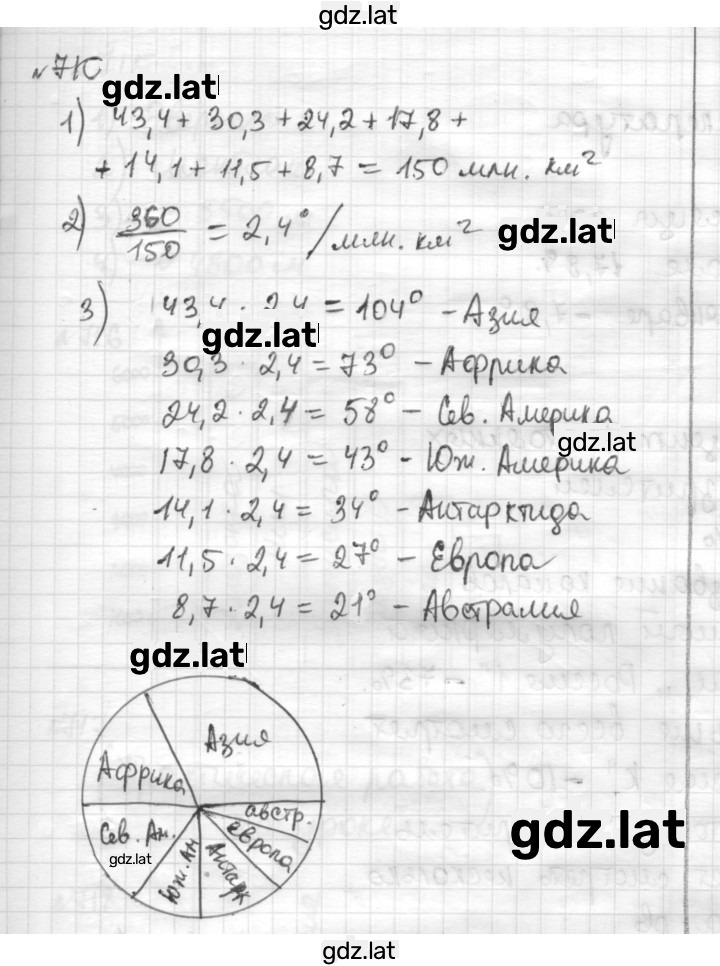 gdz.lat
№ 710
gdz.lat
1) 43,4 + 30,3 + 24,2 + 17,8 +
+ 14,1 + 11,5 + 8,7 = 150 млн. км²
2) 360/150 = 2,4°/млн. км²
gdz.lat
3) 43,4 · 2,4 = 104° - Азия
gdz.lat
30,3 · 2,4 = 73° - Африка
24,2 · 2,4 = 58° - Сев. Америка
gdz.lat
17,8 · 2,4 = 43° - Юж. Америка
14,1 · 2,4 = 34° - Антарктида
11,5 · 2,4 = 27° - Европа
8,7 · 2,4 = 21° - Австралия
gdz.lat
Азия
Африка
австр.
Сев. Ам.
европа
gdz.lat
Юж. Ам
Антарк
gdz.lat
gdz.lat